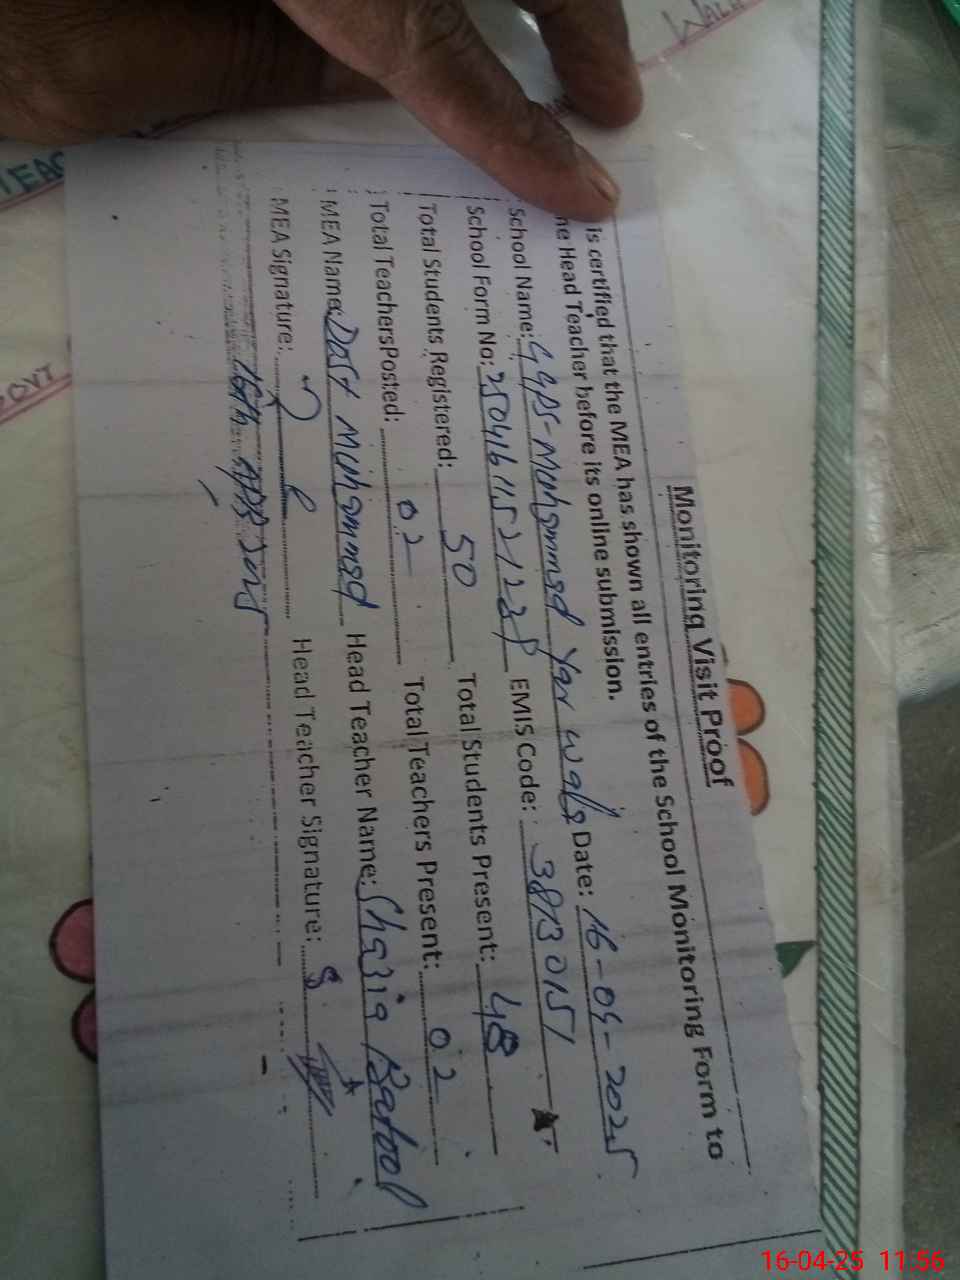 Monitoring Visit Proof
is certified that the MEA has shown all entries of the School Monitoring Form to
he Head Teacher before its online submission.
School Name: GGPS-Muhammad Yar Wala Date: 16-04-2025
School Form No: EMIS Code: 38130151
Total Students Registered: 50 Total Students Present: 48
Total TeachersPosted: 02 Total Teachers Present: 02
MEA Name: Dost Muhammad Head Teacher Name: Shazia Batool
MEA Signature: Head Teacher Signature:
16th 2025
16-04-25 11:56